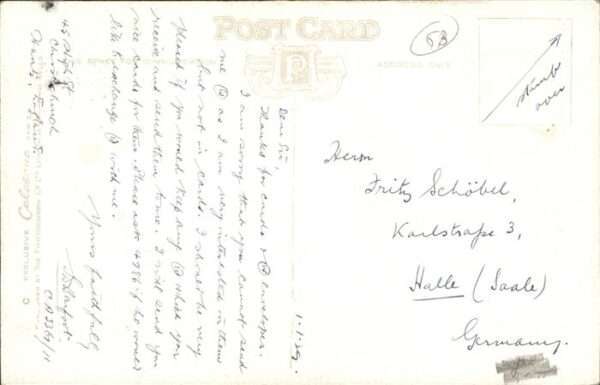 POST CARD
P
ADDRESS ONLY
5B
stamps
over
1-1-39.
Dear Sir,
Thanks for cards & @ envelopes.
I am sorry that you cannot send
me @ as I am very interested in them
but not in cards. I should be very
pleased if you would keep any @ which you
receive and send them time. I will send you
nice cards for them. Please ask 4986 if he would
like to exchange @ with me.
Yours faithfully
CA 3360/11
45 High St
Christchurch
Hants. England.
Herrn
Fritz Schöbel,
Karlstraße 3,
Halle (Saale)
Germany.
EXCLUSIVE